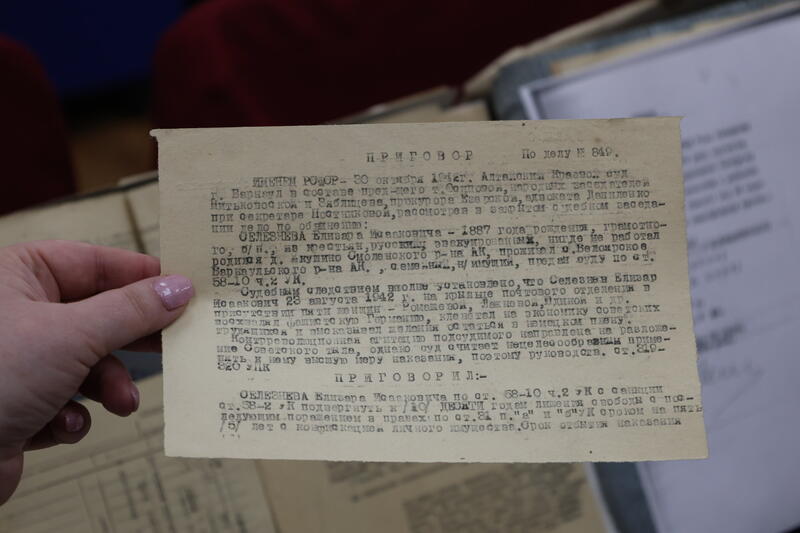 ПРИГОВОР По делу № 849.
ИМЕНЕМ РСФСР- 30 октября 1942г. Алтайский Краевой суд
г. Барнаул в составе пред-щего т. народных заседателей
и Зяблицева, прокурора Езерской, адвоката Даниленко
при секретаре Постниковой, рассмотрев в закрытом судебном заседа-
нии дело по обвинению:
СЕЛЕЗНЕВА Елизара Исааковича - 1887 года рождения, грамотно-
го, б/п, из крестьян, русский, эвакуированный, нигде не работал
родился д. Якушино Смоленского р-на АК, проживал с. Белоярское
Барнаульского р-на АК. , семейный, н/имущий, предан суду по ст.
58-10 ч.2 УК.
Судебным следствием вполне установлено, что Селезнев Елизар
Исаакович 23 августа 1942 г. на крыльце почтового отделения в
присутствии пяти женщин - Ромашевой, Лаковой, Юдиной и др.
восхвалял фашистскую Германию, клеветал на экономику советских
трудящихся и высказывал желания остаться в немецком плену.
Контрреволюционная агитацию подсудимого направлена на разложе-
ние Советского тыла, однако суд считает нецелесообразным приме-
нить к нему высшую меру наказания, поэтому руководств. ст.319-
320 УПК
ПРИГОВОРИЛ:-
СЕЛЕЗНЕВА Елизара Исааковича по ст. 58-10 ч.2 УК с санкции
ст.58-2 УК подвергнуть к /10/ ДЕСЯТИ годам лишения свободы с пос-
ледующим поражением в правах по ст.31 п. "а" и "б" УК сроком на пять
/5/ лет с конфискацией личного имущества. Срок отбытия наказания